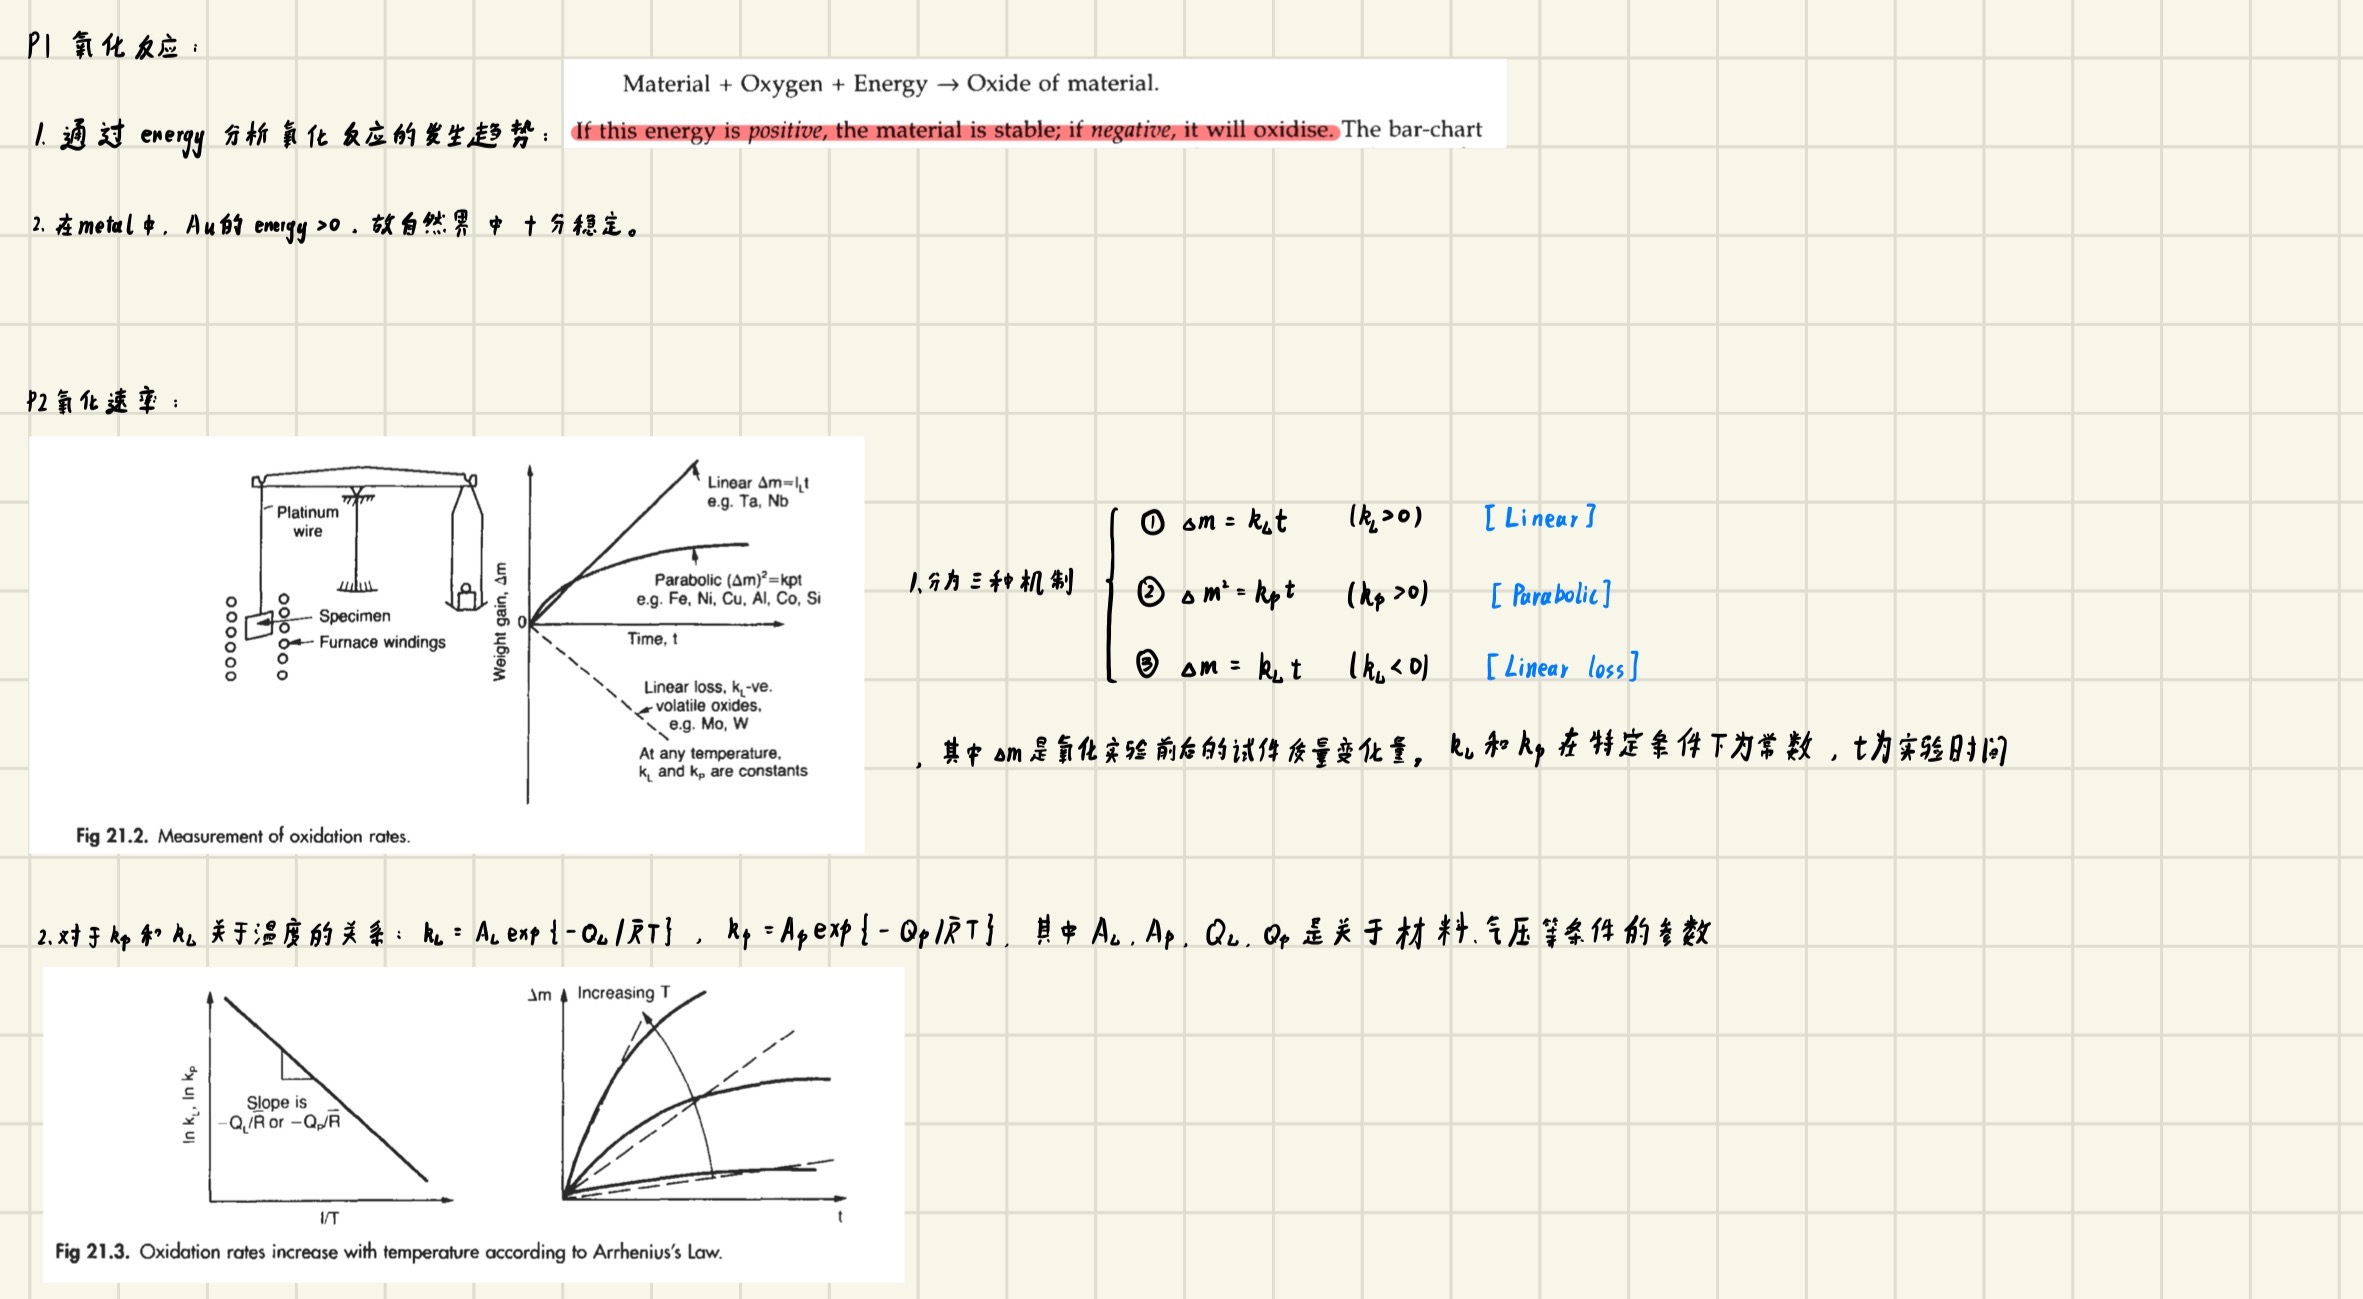 P1 氧化反应:
Material + Oxygen + Energy → Oxide of material.
1. 通过 energy 分析氧化反应的发生趋势:
If this energy is positive, the material is stable; if negative, it will oxidise. The bar-chart
2. 在metal中, Au的 energy >0. 故自然界中十分稳定。
P2 氧化速率:
Platinum
wire
Specimen
Furnace windings
Weight gain, Δm
0
Time, t
Linear Δm=lLt
e.g. Ta, Nb
Parabolic (Δm)²=kpt
e.g. Fe, Ni, Cu, Al, Co, Si
Linear loss, kL-ve.
volatile oxides,
e.g. Mo, W
At any temperature,
kL and kP are constants
Fig 21.2. Measurement of oxidation rates.
1.分为三种机制
① Δm = kLt (kL>0) [Linear]
② Δm² = kpt (kp>0) [Parabolic]
③ Δm = kLt (kL<0) [Linear loss]
, 其中 Δm是氧化实验前后的试件质量变化量, kL和kp在特定条件下为常数, t为实验时间
2.对于kp和kL关于温度的关系: kL = AL exp{-QL/R̄T}, kp = Ap exp{-Qp/R̄T}, 其中 AL, Ap, QL, Qp是关于材料、气压等条件的参数
ln kL, ln kP
Slope is
-QL/R̄ or -QP/R̄
1/T
Δm
Increasing T
t
Fig 21.3. Oxidation rates increase with temperature according to Arrhenius's Law.